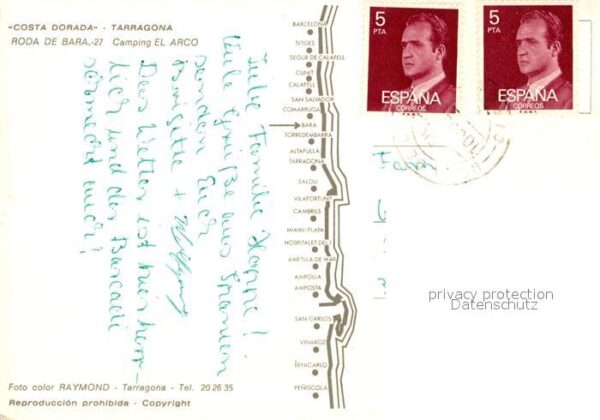 «COSTA DORADA» - TARRAGONA
RODA DE BARA.-27 Camping EL ARCO
Liebe Familie Hoppe!
Viele Grüße aus Spanien
senden Euch
Brigitte + Wolfgang
Das Wetter ist hier herr-
lich und der Bacardi
schmeckt auch!
BARCELONA
SITGES
SEGUR DE CALAFELL
CUNIT
CALAFELL
SAN SALVADOR
COMARRUGA
BARA
TORREDEMBARRA
ALTAFULLA
TARRAGONA
SALOU
VILAFORTUNY
CAMBRILS
MIAMI-PLAYA
HOSPITALET DEL I
AMETLLA DE MAR
AMPOLLA
AMPOSTA
SAN CARLOS
VINAROZ
BENICARLO
PEÑISCOLA
5
PTA
ESPAÑA
CORREOS
5
PTA
ESPAÑA
CORREOS
Fam.
privacy protection
Datenschutz
Foto color RAYMOND - Tarragona - Tel. 20.26 35
Reproducción prohibida - Copyright